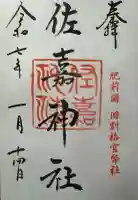 奉拝
肥前國 旧別格官幣社
佐嘉神社
令和七年 一月十四日